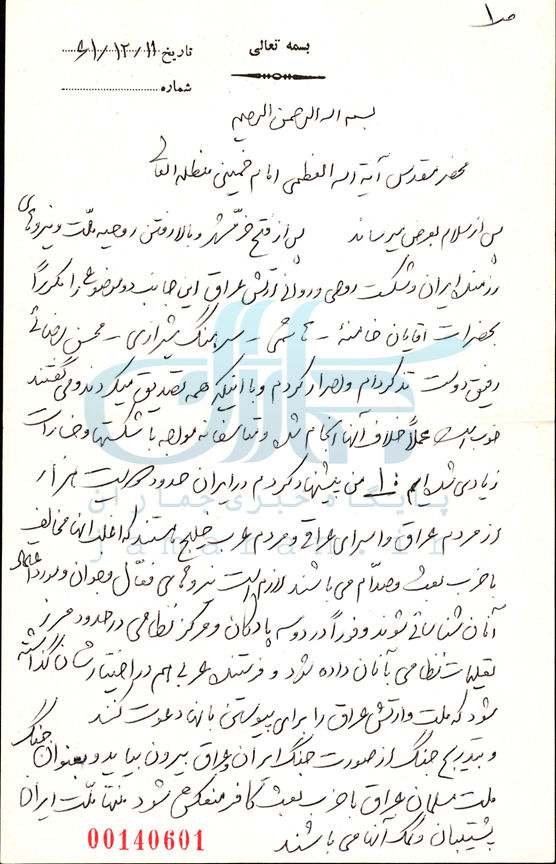 ص ۱
بسمه تعالی
تاریخ ۶۱/۱۲/۱۱
شماره
بسم الله الرحمن الرحیم
محضر مقدس آیة الله العظمی امام خمینی مدظله العالی
پس از سلام بعرض میرساند پس از فتح خرمشهر و بالا رفتن روحیه ملت و نیروهای
رزمنده ایران و شکست روحی و روانی ارتش عراق این جانب دو موضوع را مکرراً
بحضرات آقایان خامنه‌ای - هاشمی - سرهنگ شیرازی - محسن رضائی
رفیق دوست تذکر دادم و اصرار کردم و با اینکه همه تصدیق میکردند و می گفتند
خوب است عملاً خلاف آنها انجام شد و متأسفانه مواجه با شکستها و خسارات
زیادی شده ایم ۱- من پیشنهاد کردم در ایران حدود دویست هزار
از مردم عراق و اسرای عراقی و مردم عرب خلیج هستند که اغلب آنها مخالف
با حزب بعث و صدام می باشند لازم است نیروهای فعال و جوان و مورد اعتماد
آنان شناسائی شوند و فوراً در دو سه پادگان و مرکز نظامی در حدود مرز
تعلیمات نظامی بآنان داده شود و فرستنده عربی هم در اختیارشان گذاشته
شود که ملت و ارتش عراق را برای پیوستن بآنها دعوت کنند
و بتدریج جنگ از صورت جنگ ایران و عراق بیرون بیاید و بعنوان جنگ
ملت مسلمان عراق با حزب بعث کافر منعکس می شود منتها ملت ایران
پشتیبان و کمک آنها می باشند
جماران
پایگاه خبری جماران
jamaran.ir
00140601